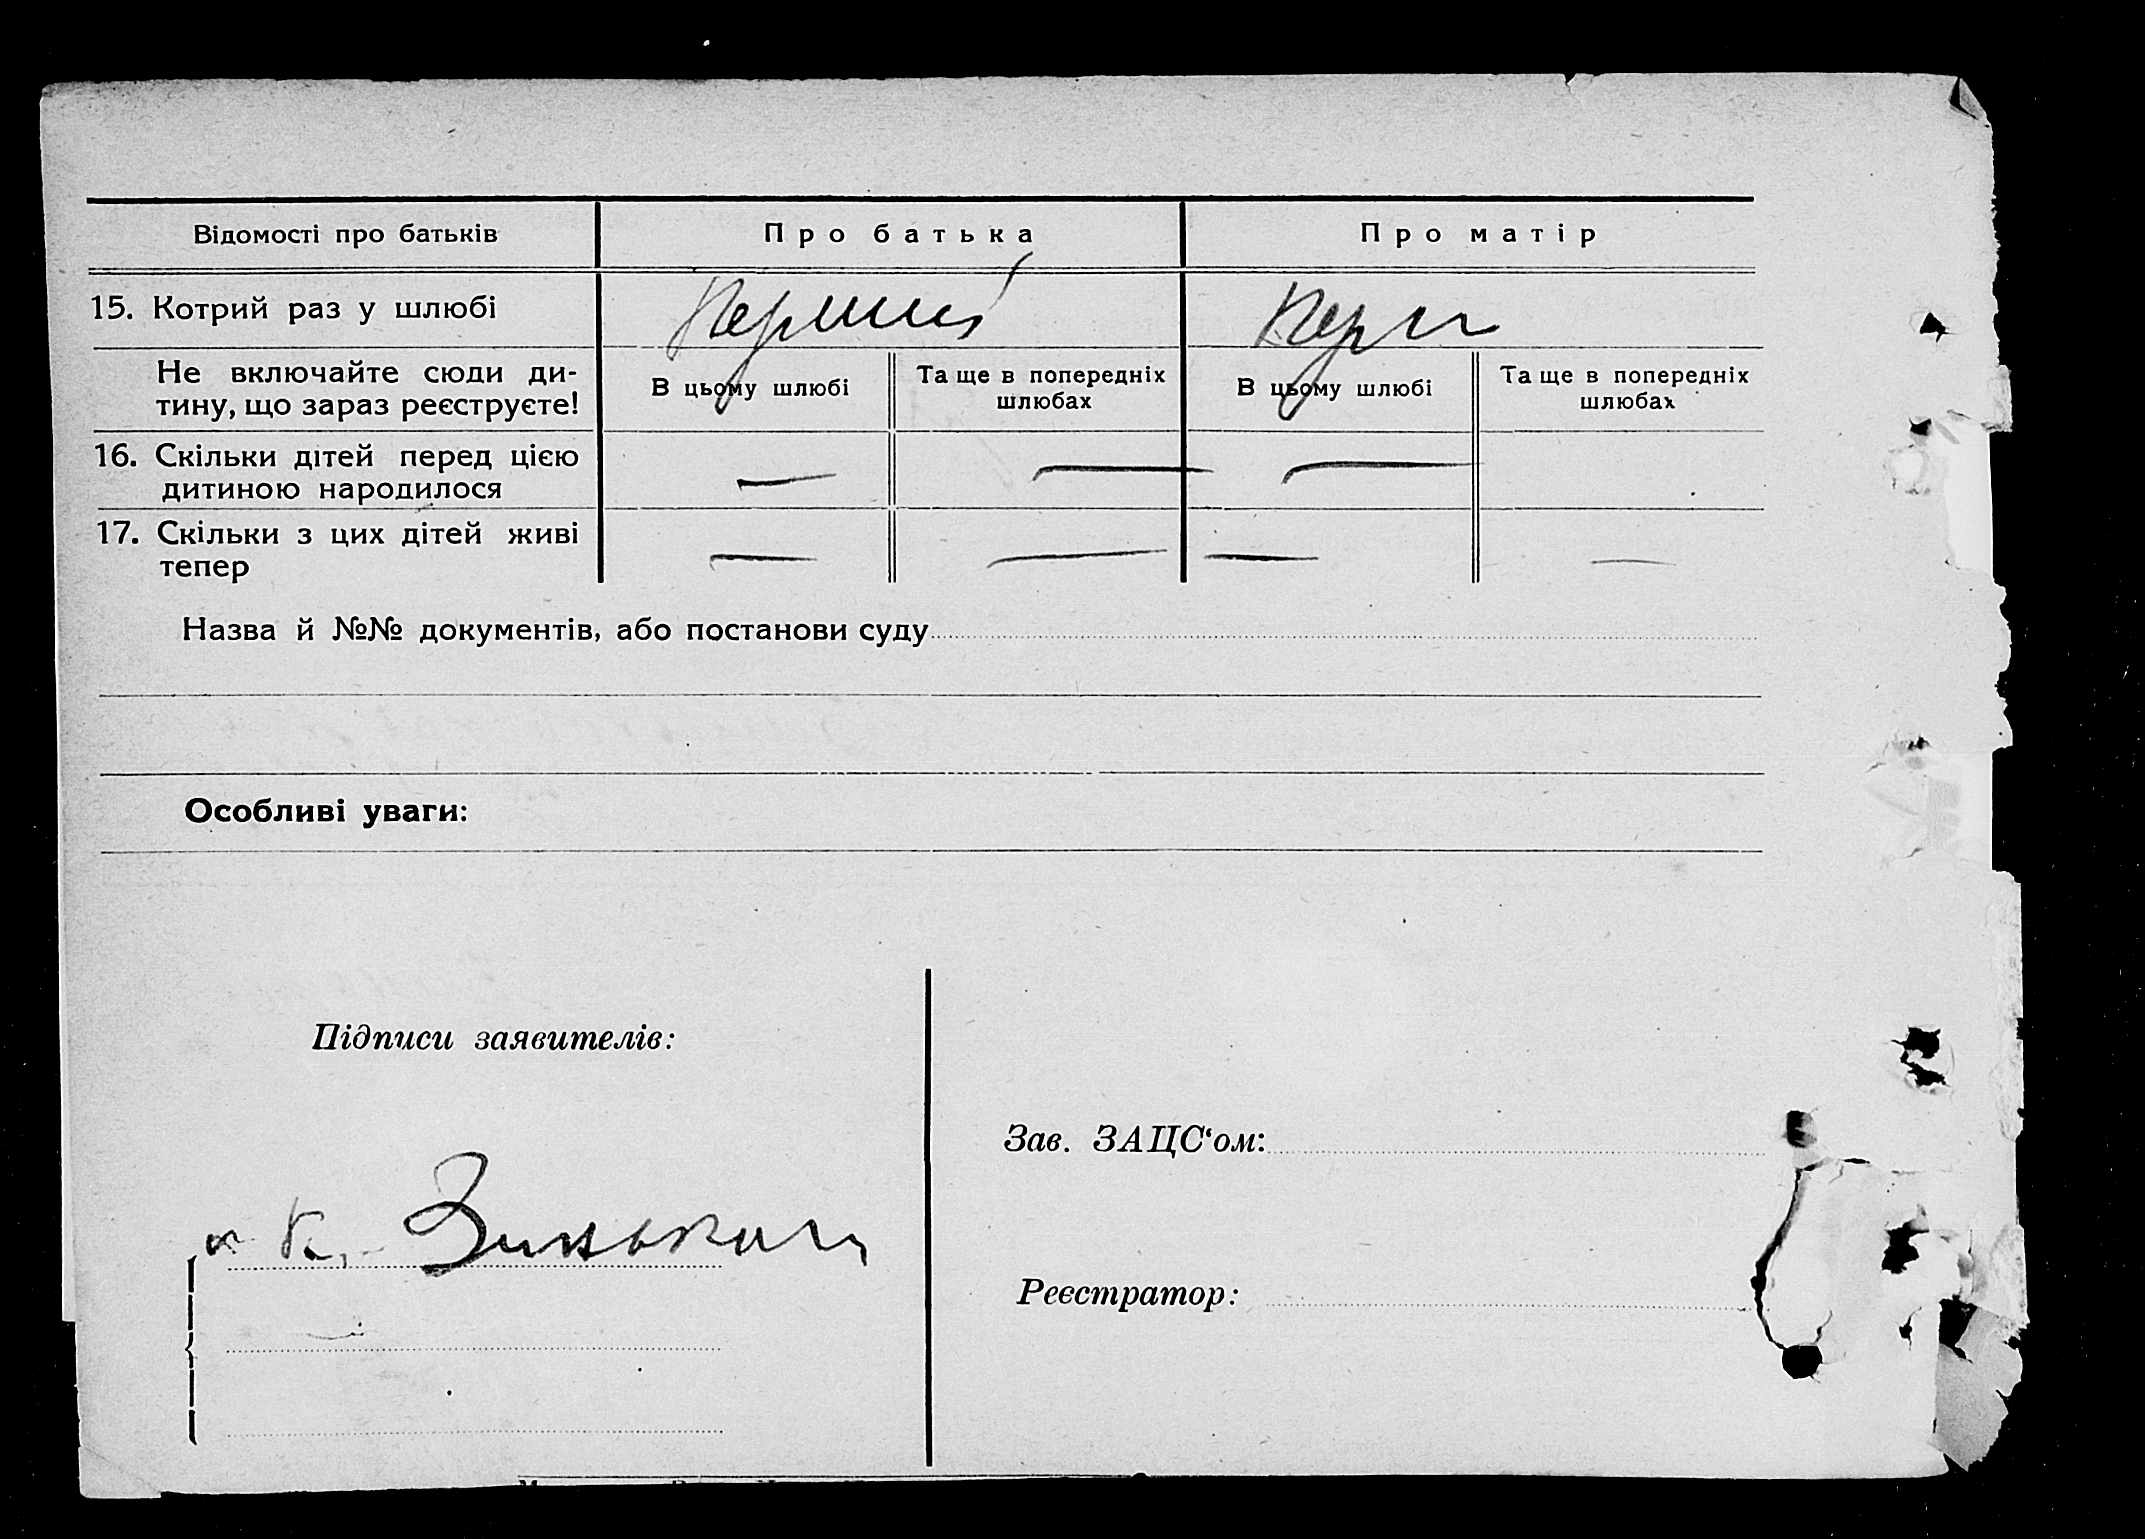 Відомості про батьків
Про батька
Про матір
15. Котрий раз у шлюбі
Перший
Перш
Не включайте сюди ди-
тину, що зараз реєструєте!
В цьому шлюбі
Та ще в попередніх
шлюбах
В цьому шлюбі
Та ще в попередніх
шлюбах
16. Скільки дітей перед цією
дитиною народилося
— — —
17. Скільки з цих дітей живі
тепер
— — — —
Назва й №№ документів, або постанови суду
Особливі уваги:
Підписи заявителів:
Зав. ЗАЦС‘ом:
Реєстратор: